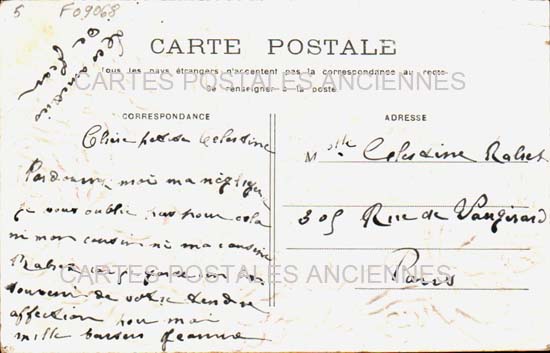 5 F09068
CARTE POSTALE
Tous les pays étrangers n'acceptent pas la correspondance au recto
Se renseigner à la poste
CARTES POSTALES ANCIENNES
CORRESPONDANCE
ADRESSE
Chère petite Celestine
Pardonne moi ma négligen
je vous oublie pas pour cela
ni mon cousin ni ma cousine
je garde un
souvenir de votre tendre
affection pour moi
mille baisers Jeanne
Mlle Celestine
305 Rue de Vaugirard
Paris
CARTES POSTALES ANCIENNES